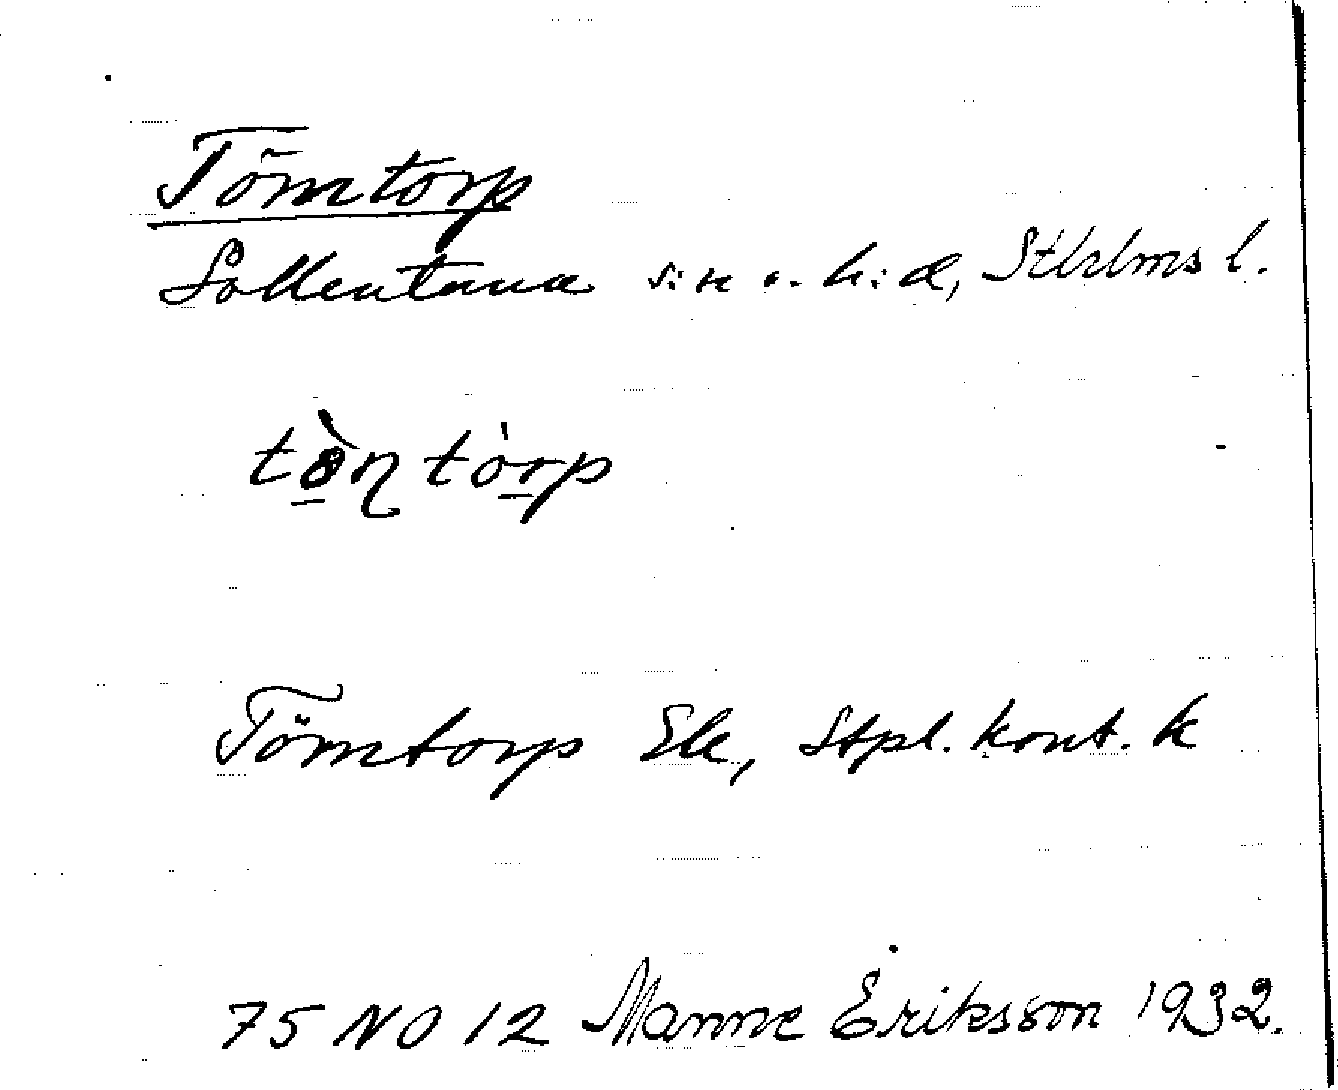 Tömtorp
Sollentuna s:n o. h:d, Sthlms l.
tö̀n tȯrp
Tömtorp Ek, Stpl. kont. k
75 NO 12 Manne Eriksson 1932.